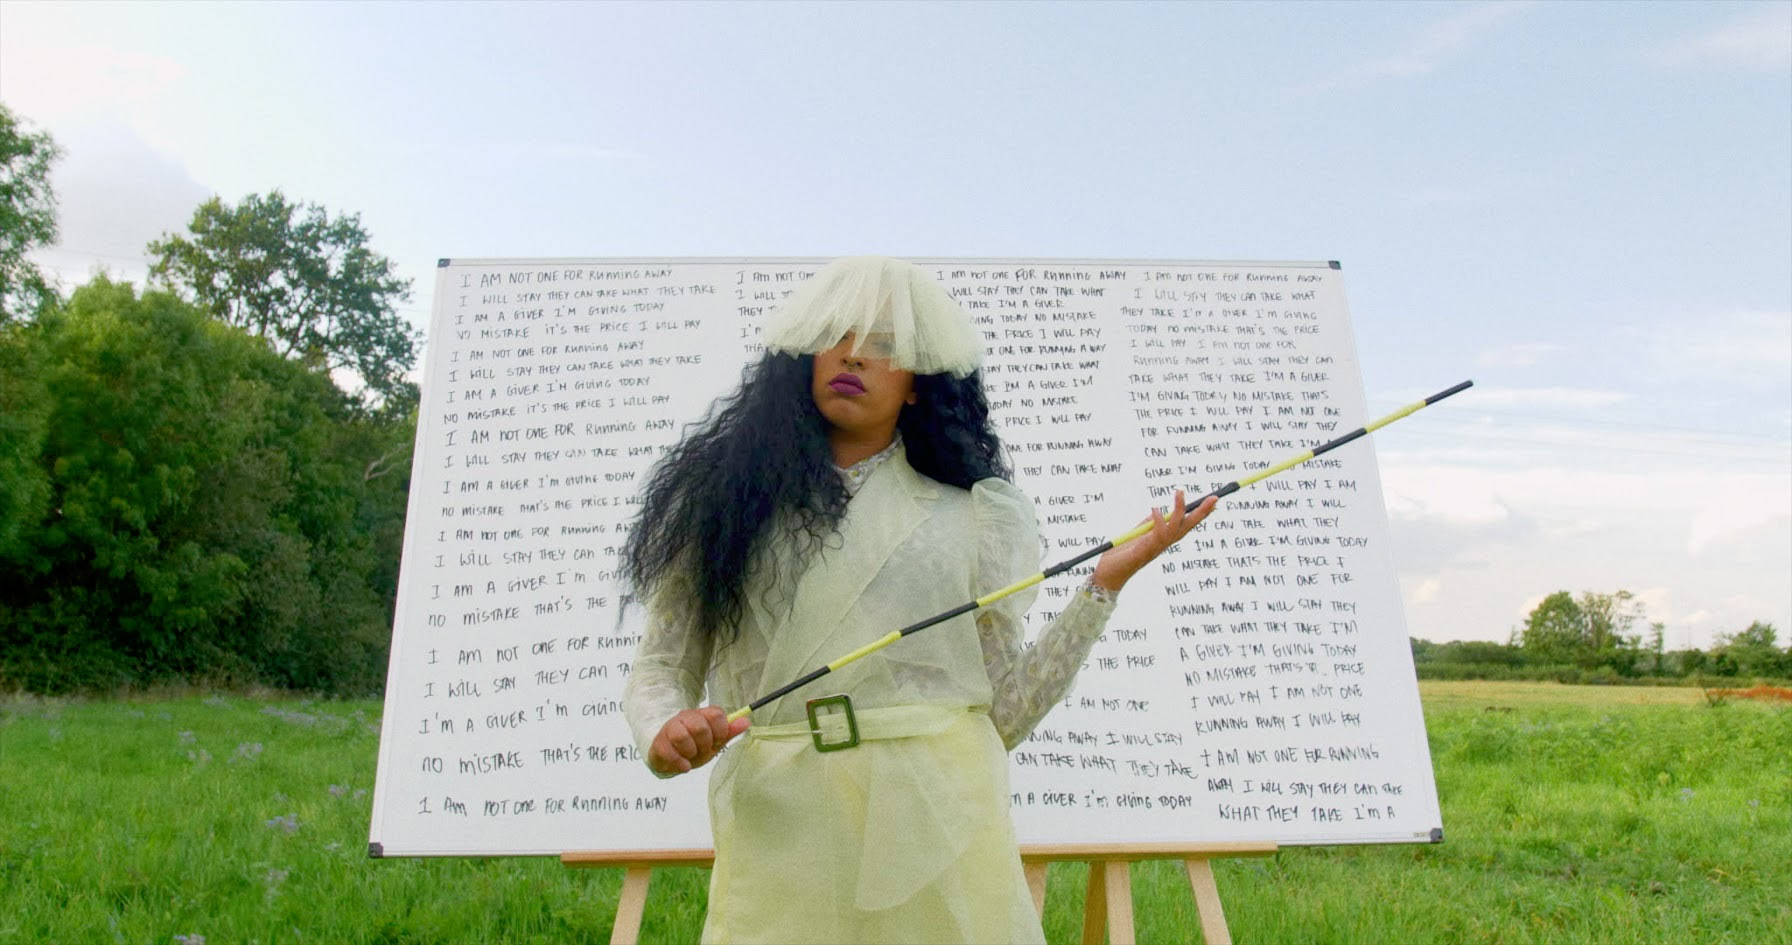 I AM NOT ONE FOR Running AWAY
I WILL STAY THEY CAN TAKE WHAT THEY TAKE
I AM A GIVER I'M GIVING TODAY
NO MISTAKE it's THE PRICE I WILL PAY
I AM NOT ONE FOR Running AWAY
I WILL STAY THEY CAN TAKE WHAT THEY TAKE
I AM A GIVER I'M GIVING TODAY
NO MISTAKE it's THE PRICE I WILL PAY
I AM NOT ONE FOR Running AWAY
I WILL STAY THEY CAN TAKE WHAT
I AM A GIVER I'm GIVING TODAY
no MISTAKE THAT'S THE PRICE I
I AM NOT ONE FOR Running
I WILL STAY THEY CAN TAKE
I AM A GIVER I'm
no MISTAKE THAT'S THE
I AM NOT ONE FOR
I WILL STAY THEY CAN
I'M A GIVER I'm
no MISTAKE THAT'S THE
I AM NOT ONE FOR Running AWAY
I Am not
I WILL
THEY
I'm
I am not one FOR Running AWAY
WILL STAY THEY CAN TAKE WHAT
TAKE I'M A GIVER
TODAY NO MISTAKE
THE PRICE I WILL PAY
ONE FOR RUNNING AWAY
THEY CAN TAKE WHAT
I'M A GIVER I'M
TODAY NO MISTAKE
PRICE I WILL PAY
ONE FOR RUNNING AWAY
THEY CAN TAKE WHAT
A GIVER I'M
MISTAKE
I WILL PAY
THEY
TODAY
THE PRICE
I AM NOT ONE
AWAY I WILL STAY
CAN TAKE WHAT THEY TAKE
A GIVER I'm GIVING TODAY
I Am not ONE FOR Running AWAY
I WILL STAY THEY CAN TAKE WHAT
THEY TAKE I'm A GIVER I'm GIVING
TODAY no MISTAKE THAT'S THE PRICE
I WILL PAY I AM NOT ONE FOR
Running AWAY I WILL STAY THEY CAN
TAKE WHAT THEY TAKE I'M A GIVER
I'M GIVING TODAY NO MISTAKE THATS
THE PRICE I WILL PAY I AM NOT ONE
FOR RUNNING AWAY I WILL STAY THEY
CAN TAKE WHAT THEY TAKE I'M A
GIVER I'M GIVING TODAY MISTAKE
THATS THE I WILL PAY I AM
RUNNING AWAY I WILL
CAN TAKE WHAT THEY
I'M A GIVER I'M GIVING TODAY
NO MISTAKE THATS THE PRICE I
WILL PAY I AM NOT ONE FOR
RUNNING AWAY I WILL STAY THEY
CAN TAKE WHAT THEY TAKE I'M
A GIVER I'M GIVING TODAY
NO MISTAKE THAT'S PRICE
I WILL PAY I AM NOT ONE
RUNNING AWAY I WILL PAY
I AM NOT ONE FOR RUNNING
AWAY I WILL STAY THEY CAN TAKE
WHAT THEY TAKE I'M A